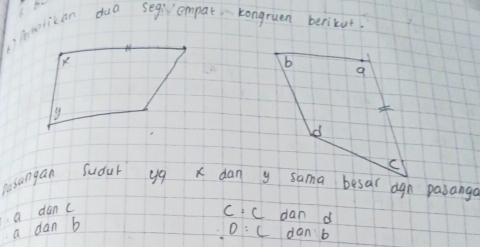 dua segi empat kongruen berikut.
x
y
b
a
d
c
pasangan sudut yg x dan y sama besar dgn pasanga
a dan c
C : C dan d
a dan b
D : C dan b